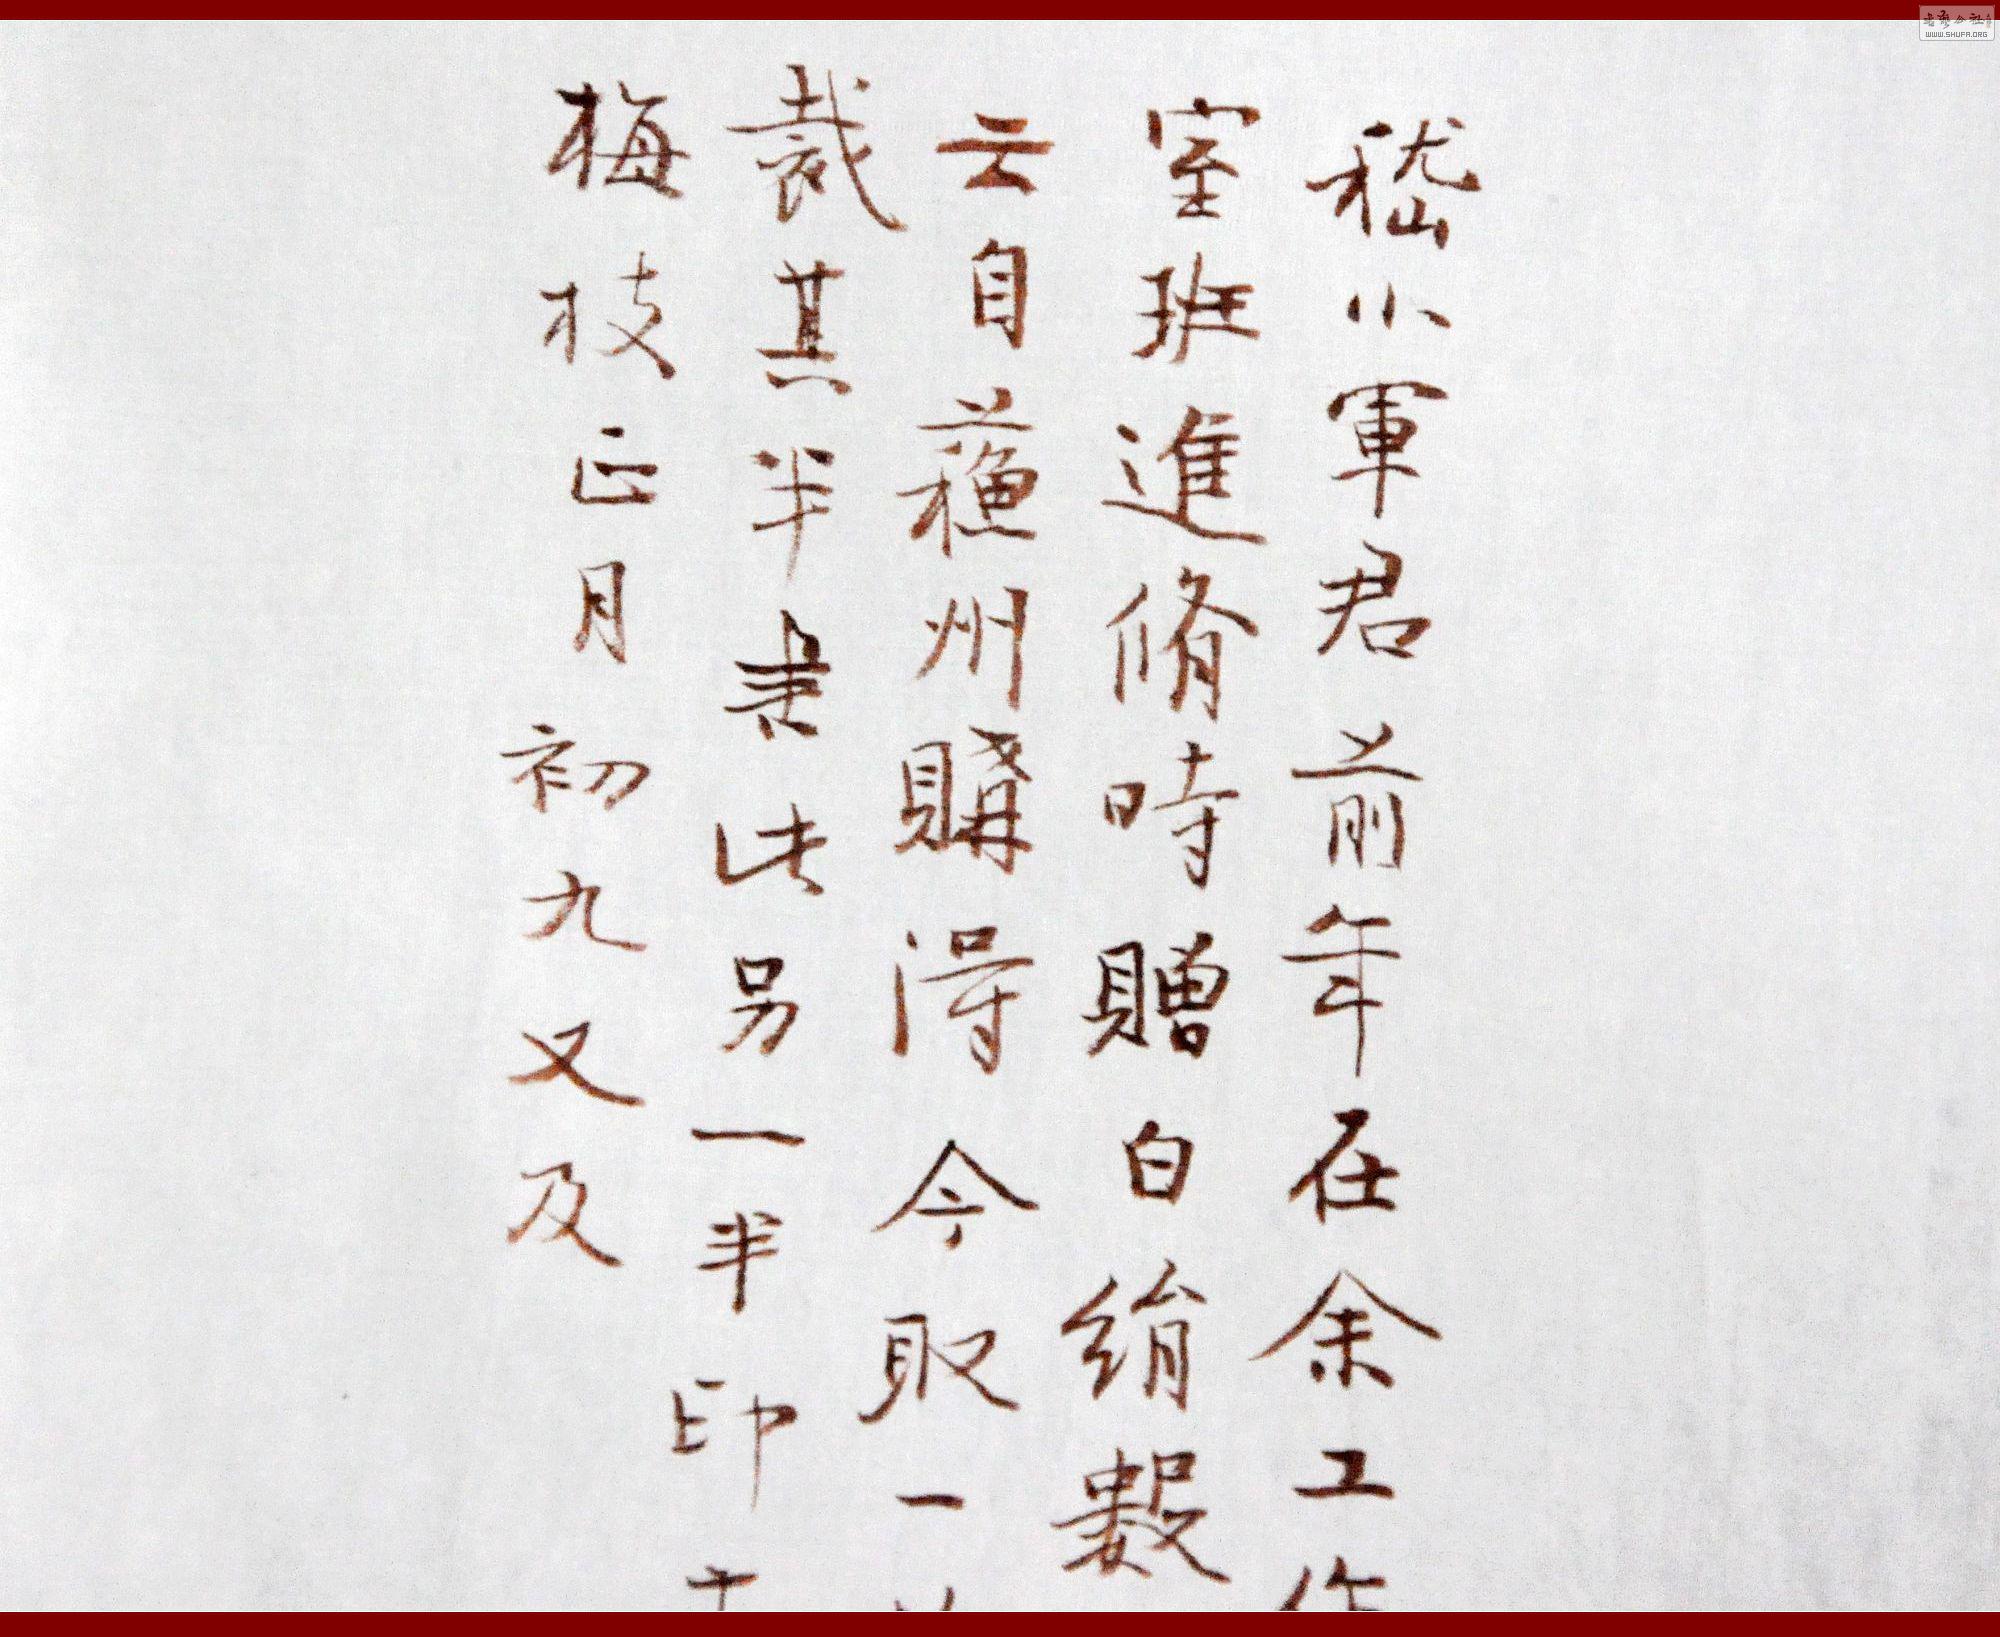 嵇小軍君前年在余工作
室班進脩時贈白絹數
云自蘇州購得今取一
裁其半書此另一半印
梅枝正月初九又及
WWW.SHUFA.ORG